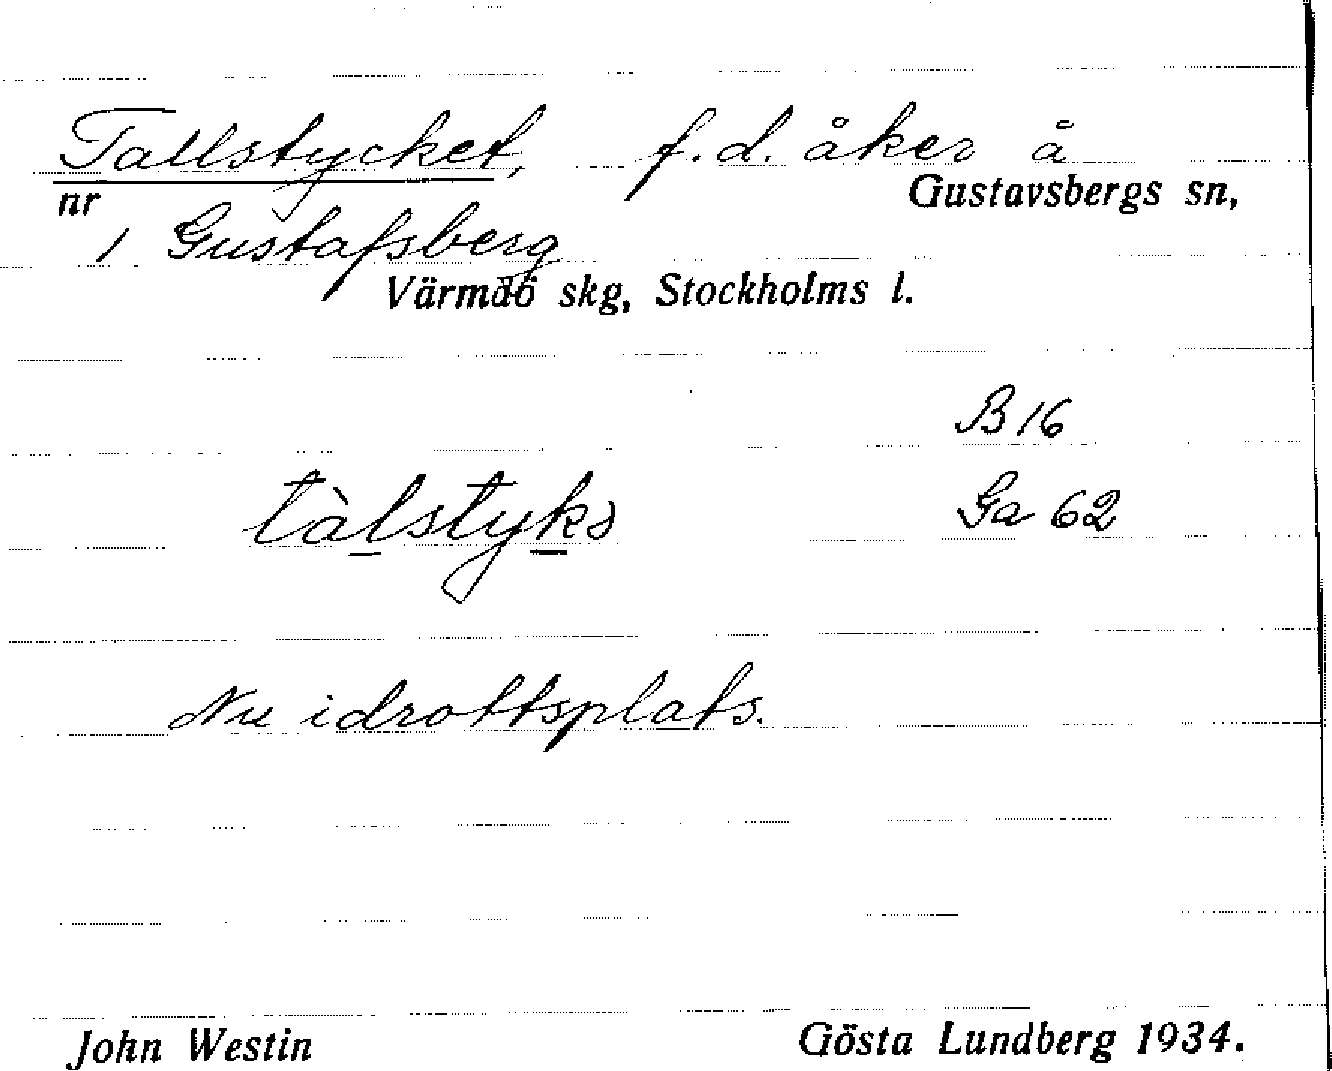 Tallstycket, f.d. åker å
nr Gustavsbergs sn,
1 Gustafsberg
Värmdö skg, Stockholms l.
B 16
tàlstykə Ga 62
Nu idrottsplats.
John Westin Gösta Lundberg 1934.